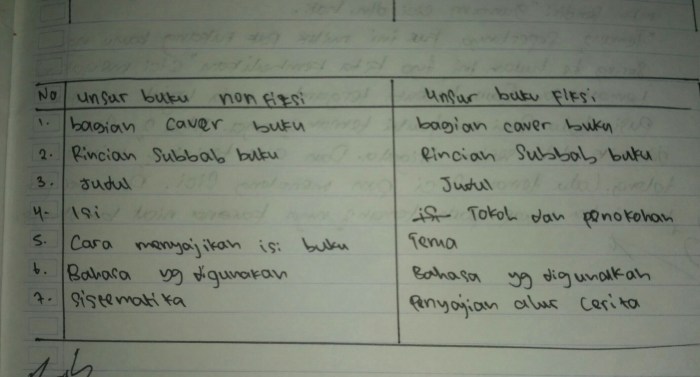 No unsur buku non fiksi unsur buku fiksi
1. bagian caver buku bagian caver buku
2. Rincian Subbab buku Rincian Subbab buku
3. Judul Judul
4. Isi Tokoh dan penokohan
5. Cara menyajikan isi buku Tema
6. Bahasa yg digunakan Bahasa yg digunalkan
7. Sistematika Penyajian alur Cerita